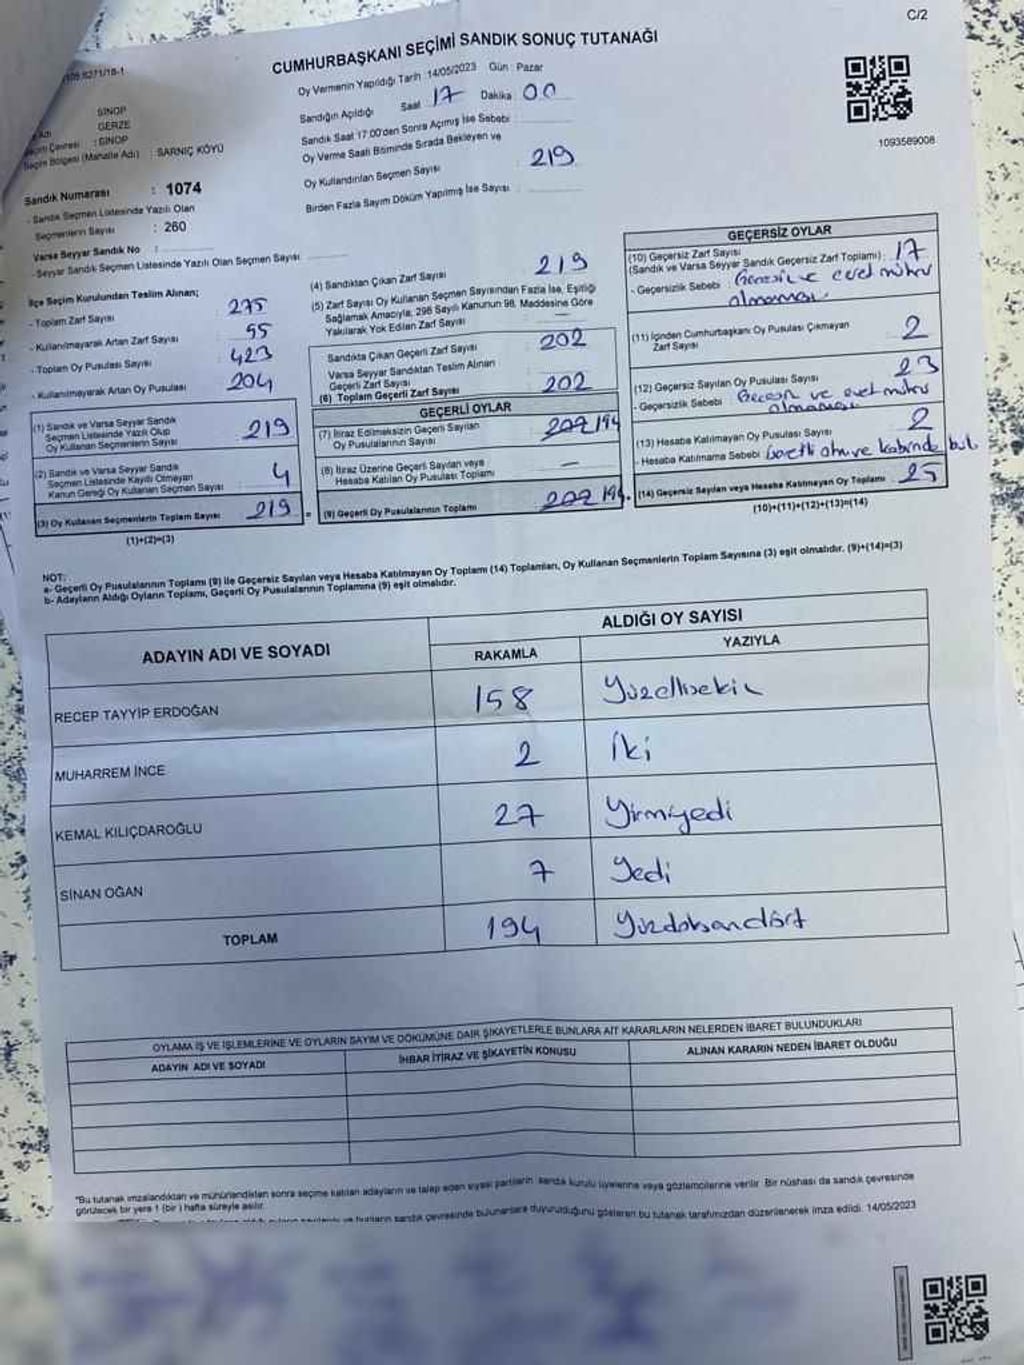 C/2
CUMHURBAŞKANI SEÇİMİ SANDIK SONUÇ TUTANAĞI
Oy Vermenin Yapıldığı Tarih :14/05/2023 Gün : Pazar
Sandığın Açıldığı Saat 17 Dakika : 00
Sandık Saat 17:00'den Sonra Açılmış İse Sebebi :
Oy Verme Saati Bitiminde Sırada Bekleyen ve
Oy Kullandırılan Seçmen Sayısı : 219
Birden Fazla Sayım Döküm Yapılmış İse Sayısı :
1093589008
SİNOP
GERZE
: SİNOP
Seçim Bölgesi (Mahalle Adı) : SARNIÇ KÖYÜ
Sandık Numarası : 1074
- Sandık Seçmen Listesinde Yazılı Olan
Seçmenlerin Sayısı : 260
Varsa Seyyar Sandık No :
- Seyyar Sandık Seçmen Listesinde Yazılı Olan Seçmen Sayısı
İlçe Seçim Kurulundan Teslim Alınan;
- Toplam Zarf Sayısı : 275
- Kullanılmayarak Artan Zarf Sayısı : 55
- Toplam Oy Pusulası Sayısı : 423
- Kullanılmayarak Artan Oy Pusulası : 204
(1) Sandık ve Varsa Seyyar Sandık
Seçmen Listesinde Yazılı Olup
Oy Kullanan Seçmenlerin Sayısı 219
(2) Sandık ve Varsa Seyyar Sandık
Seçmen Listesinde Kayıtlı Olmayan
Kanun Gereği Oy Kullanan Seçmen Sayısı 4
(3) Oy Kullanan Seçmenlerin Toplam Sayısı 219 =
(1)+(2)=(3)
(4) Sandıktan Çıkan Zarf Sayısı : 219
(5) Zarf Sayısı Oy Kullanan Seçmen Sayısından Fazla İse, Eşitliği
Sağlamak Amacıyla, 298 Sayılı Kanunun 98. Maddesine Göre
Yakılarak Yok Edilen Zarf Sayısı : —
Sandıkta Çıkan Geçerli Zarf Sayısı : 202
Varsa Seyyar Sandıktan Teslim Alınan
Geçerli Zarf Sayısı
(6) Toplam Geçerli Zarf Sayısı : 202
GEÇERLİ OYLAR
(7) İtiraz Edilmeksizin Geçerli Sayılan
Oy Pusulalarının Sayısı : 202 194
(8) İtiraz Üzerine Geçerli Sayılan veya
Hesaba Katılan Oy Pusulası Toplamı : —
(9) Geçerli Oy Pusulalarının Toplamı : 202 194
GEÇERSİZ OYLAR
(10) Geçersiz Zarf Sayısı
(Sandık ve Varsa Seyyar Sandık Geçersiz Zarf Toplamı) : 17
- Geçersizlik Sebebi : ve evet mührü
olmaması
(11) İçinden Cumhurbaşkanı Oy Pusulası Çıkmayan
Zarf Sayısı : 2
(12) Geçersiz Sayılan Oy Pusulası Sayısı : 23
- Geçersizlik Sebebi : ve evet mührü
olmaması
(13) Hesaba Katılmayan Oy Pusulası Sayısı : 2
- Hesaba Katılmama Sebebi :
(14) Geçersiz Sayılan veya Hesaba Katılmayan Oy Toplamı : 25
(10)+(11)+(12)+(13)=(14)
NOT:
a- Geçerli Oy Pusulalarının Toplamı (9) ile Geçersiz Sayılan veya Hesaba Katılmayan Oy Toplamı (14) Toplamları, Oy Kullanan Seçmenlerin Toplam Sayısına (3) eşit olmalıdır. (9)+(14)=(3)
b- Adayların Aldığı Oyların Toplamı, Geçerli Oy Pusulalarının Toplamına (9) eşit olmalıdır.
ADAYIN ADI VE SOYADI
ALDIĞI OY SAYISI
RAKAMLA YAZIYLA
RECEP TAYYİP ERDOĞAN 158 Yüzellisekiz
MUHARREM İNCE 2 İki
KEMAL KILIÇDAROĞLU 27 Yirmiyedi
SİNAN OĞAN 7 Yedi
TOPLAM 194 Yüzdoksandört
OYLAMA İŞ VE İŞLEMLERİNE VE OYLARIN SAYIM VE DÖKÜMÜNE DAİR ŞİKAYETLERLE BUNLARA AİT KARARLARIN NELERDEN İBARET BULUNDUKLARI
ADAYIN ADI VE SOYADI İHBAR İTİRAZ VE ŞİKAYETİN KONUSU ALINAN KARARIN NEDEN İBARET OLDUĞU
*Bu tutanak imzalandıktan ve mühürlendikten sonra seçime katılan adayların ve talep eden siyasi partilerin sandık kurulu üyelerine veya gözlemcilerine verilir. Bir nüshası da sandık çevresinde
görülecek bir yere 1 (bir ) hafta süreyle asılır.
sandık çevresinde bulunanlara duyurulduğunu gösteren bu tutanak tarafımızdan düzenlenerek imza edildi. 14/05/2023